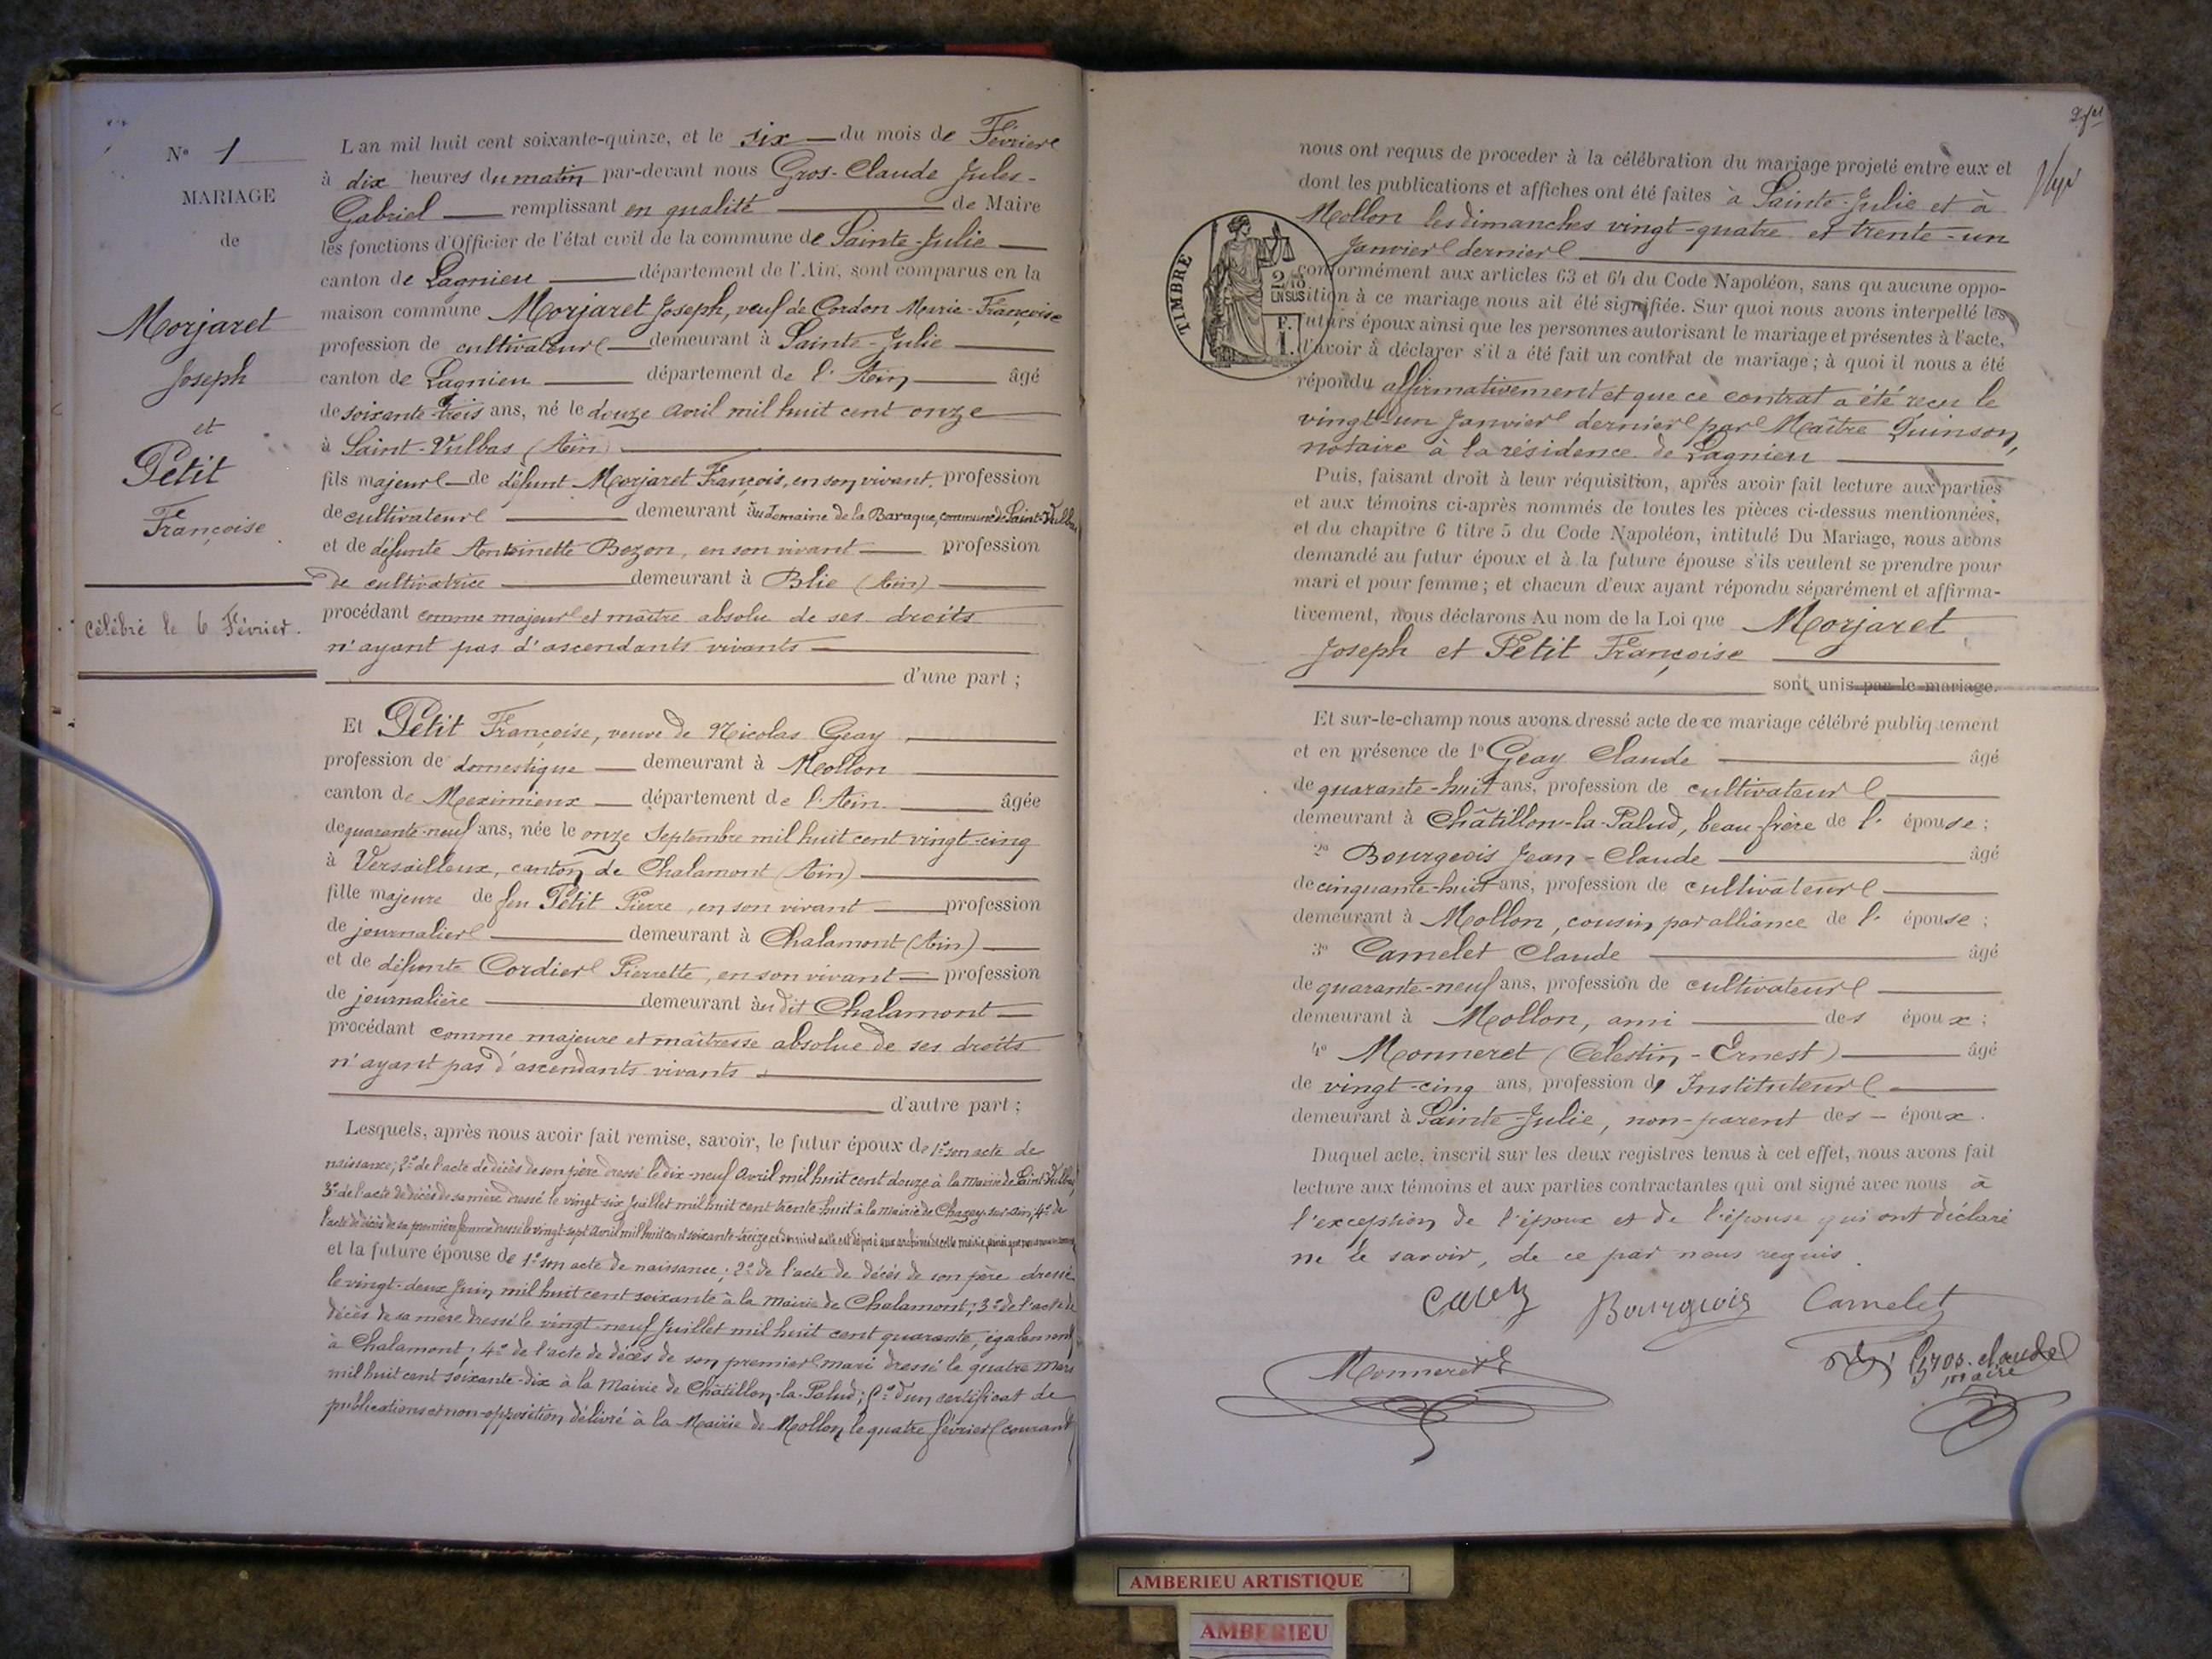 N° 1
MARIAGE
de
Morjaret
Joseph
et
Petit
Françoise
Célébré le 6 Février.
L'an mil huit cent soixante-quinze, et le six du mois de Février
à dix heures du matin par-devant nous Gros-Claude Jules-
Gabriel remplissant en qualité de Maire
les fonctions d'Officier de l'état civil de la commune de Sainte-Julie
canton de Lagnieu département de l'Ain, sont comparus en la
maison commune Morjaret Joseph, veuf de Cordon Marie-Françoise
profession de cultivateur demeurant à Sainte-Julie
canton de Lagnieu département de l'Ain âgé
de soixante-trois ans, né le douze avril mil huit cent onze
à Saint-Vulbas (Ain)
fils majeur de défunt Morjaret François, en son vivant profession
de cultivateur demeurant au Domaine de la Baraque, commune de Saint-Vulbas
et de défunte Antoinette Bozon, en son vivant profession
de cultivatrice demeurant à Blie (Ain)
procédant comme majeur et maître absolu de ses droits
n'ayant pas d'ascendants vivants
d'une part ;
Et Petit Françoise, veuve de Nicolas Geay
profession de domestique demeurant à Mollon
canton de Meximieux département de l'Ain âgée
de quarante-neuf ans, née le onze Septembre mil huit cent vingt-cinq
à Versailleux, canton de Chalamont (Ain)
fille majeure de feu Petit Pierre, en son vivant profession
de journalier demeurant à Chalamont (Ain)
et de défunte Cordier Pierrette, en son vivant profession
de journalière demeurant au dit Chalamont
procédant comme majeure et maîtresse absolue de ses droits
n'ayant pas d'ascendants vivants
d'autre part ;
Lesquels, après nous avoir fait remise, savoir, le futur époux de 1° son acte de
naissance; 2° de l'acte de décès de son père dressé le dix-neuf Avril mil huit cent douze à la Mairie de Saint-Vulbas,
3° de l'acte de décès de sa mère dressé le vingt-six Juillet mil huit cent trente-huit à la mairie de Chazey-sur-Ain; 4° de
l'acte de décès de sa première femme dressé le vingt-sept Avril mil huit cent soixante-treize, ce dernier acte est déposé aux archives de cette mairie,
et la future épouse de 1° son acte de naissance; 2° de l'acte de décès de son père dressé
le vingt-deux Juin mil huit cent soixante à la Mairie de Chalamont; 3° de l'acte de
décès de sa mère dressé le vingt-neuf Juillet mil huit cent quarante, également
à Chalamont; 4° de l'acte de décès de son premier mari dressé le quatre Mars
mil huit cent soixante-dix à la Mairie de Châtillon-la-Palud; 5° d'un certificat de
publications et non-opposition, délivré à la Mairie de Mollon le quatre février courant
nous ont requis de proceder à la célébration du mariage projeté entre eux et
dont les publications et affiches ont été faites à Sainte-Julie et à
Mollon les dimanches vingt-quatre et trente-un
Janvier dernier
TIMBRE
2/10
EN SUS
F.
1.
conformément aux articles 63 et 64 du Code Napoléon, sans qu'aucune oppo-
sition à ce mariage nous ait été signifiée. Sur quoi nous avons interpellé les
futurs époux ainsi que les personnes autorisant le mariage et présentes à l'acte,
d'avoir à déclarer s'il a été fait un contrat de mariage ; à quoi il nous a été
répondu affirmativement et que ce contrat a été reçu le
vingt-un Janvier dernier par Maître Quinson,
notaire à la résidence de Lagnieu
Puis, faisant droit à leur réquisition, après avoir fait lecture aux parties
et aux témoins ci-après nommés de toutes les pièces ci-dessus mentionnées,
et du chapitre 6 titre 5 du Code Napoléon, intitulé Du Mariage, nous avons
demandé au futur époux et à la future épouse s'ils veulent se prendre pour
mari et pour femme ; et chacun d'eux ayant répondu séparément et affirma-
tivement, nous déclarons Au nom de la Loi que Morjaret
Joseph et Petit Françoise
sont unis par le mariage.
Et sur-le-champ nous avons dressé acte de ce mariage célébré publiquement
et en présence de 1° Geay Claude âgé
de quarante-huit ans, profession de cultivateur
demeurant à Châtillon-la-Palud, beau-frère de l' épouse ;
2° Bourgeois Jean-Claude âgé
de cinquante-huit ans, profession de cultivateur
demeurant à Mollon, cousin par alliance de l' épouse ;
3° Camelet Claude âgé
de quarante-neuf ans, profession de cultivateur
demeurant à Mollon, ami des époux ;
4° Monneret (Célestin-Ernest) âgé
de vingt-cinq ans, profession de Instituteur
demeurant à Sainte-Julie, non-parent des époux.
Duquel acte, inscrit sur les deux registres tenus à cet effet, nous avons fait
lecture aux témoins et aux parties contractantes qui ont signé avec nous à
l'exception de l'époux et de l'épouse qui ont déclaré
ne le savoir, de ce par nous requis.
Bourgeois Camelet
Monneret
Gros-claude
maire
AMBERIEU ARTISTIQUE
AMBERIEU